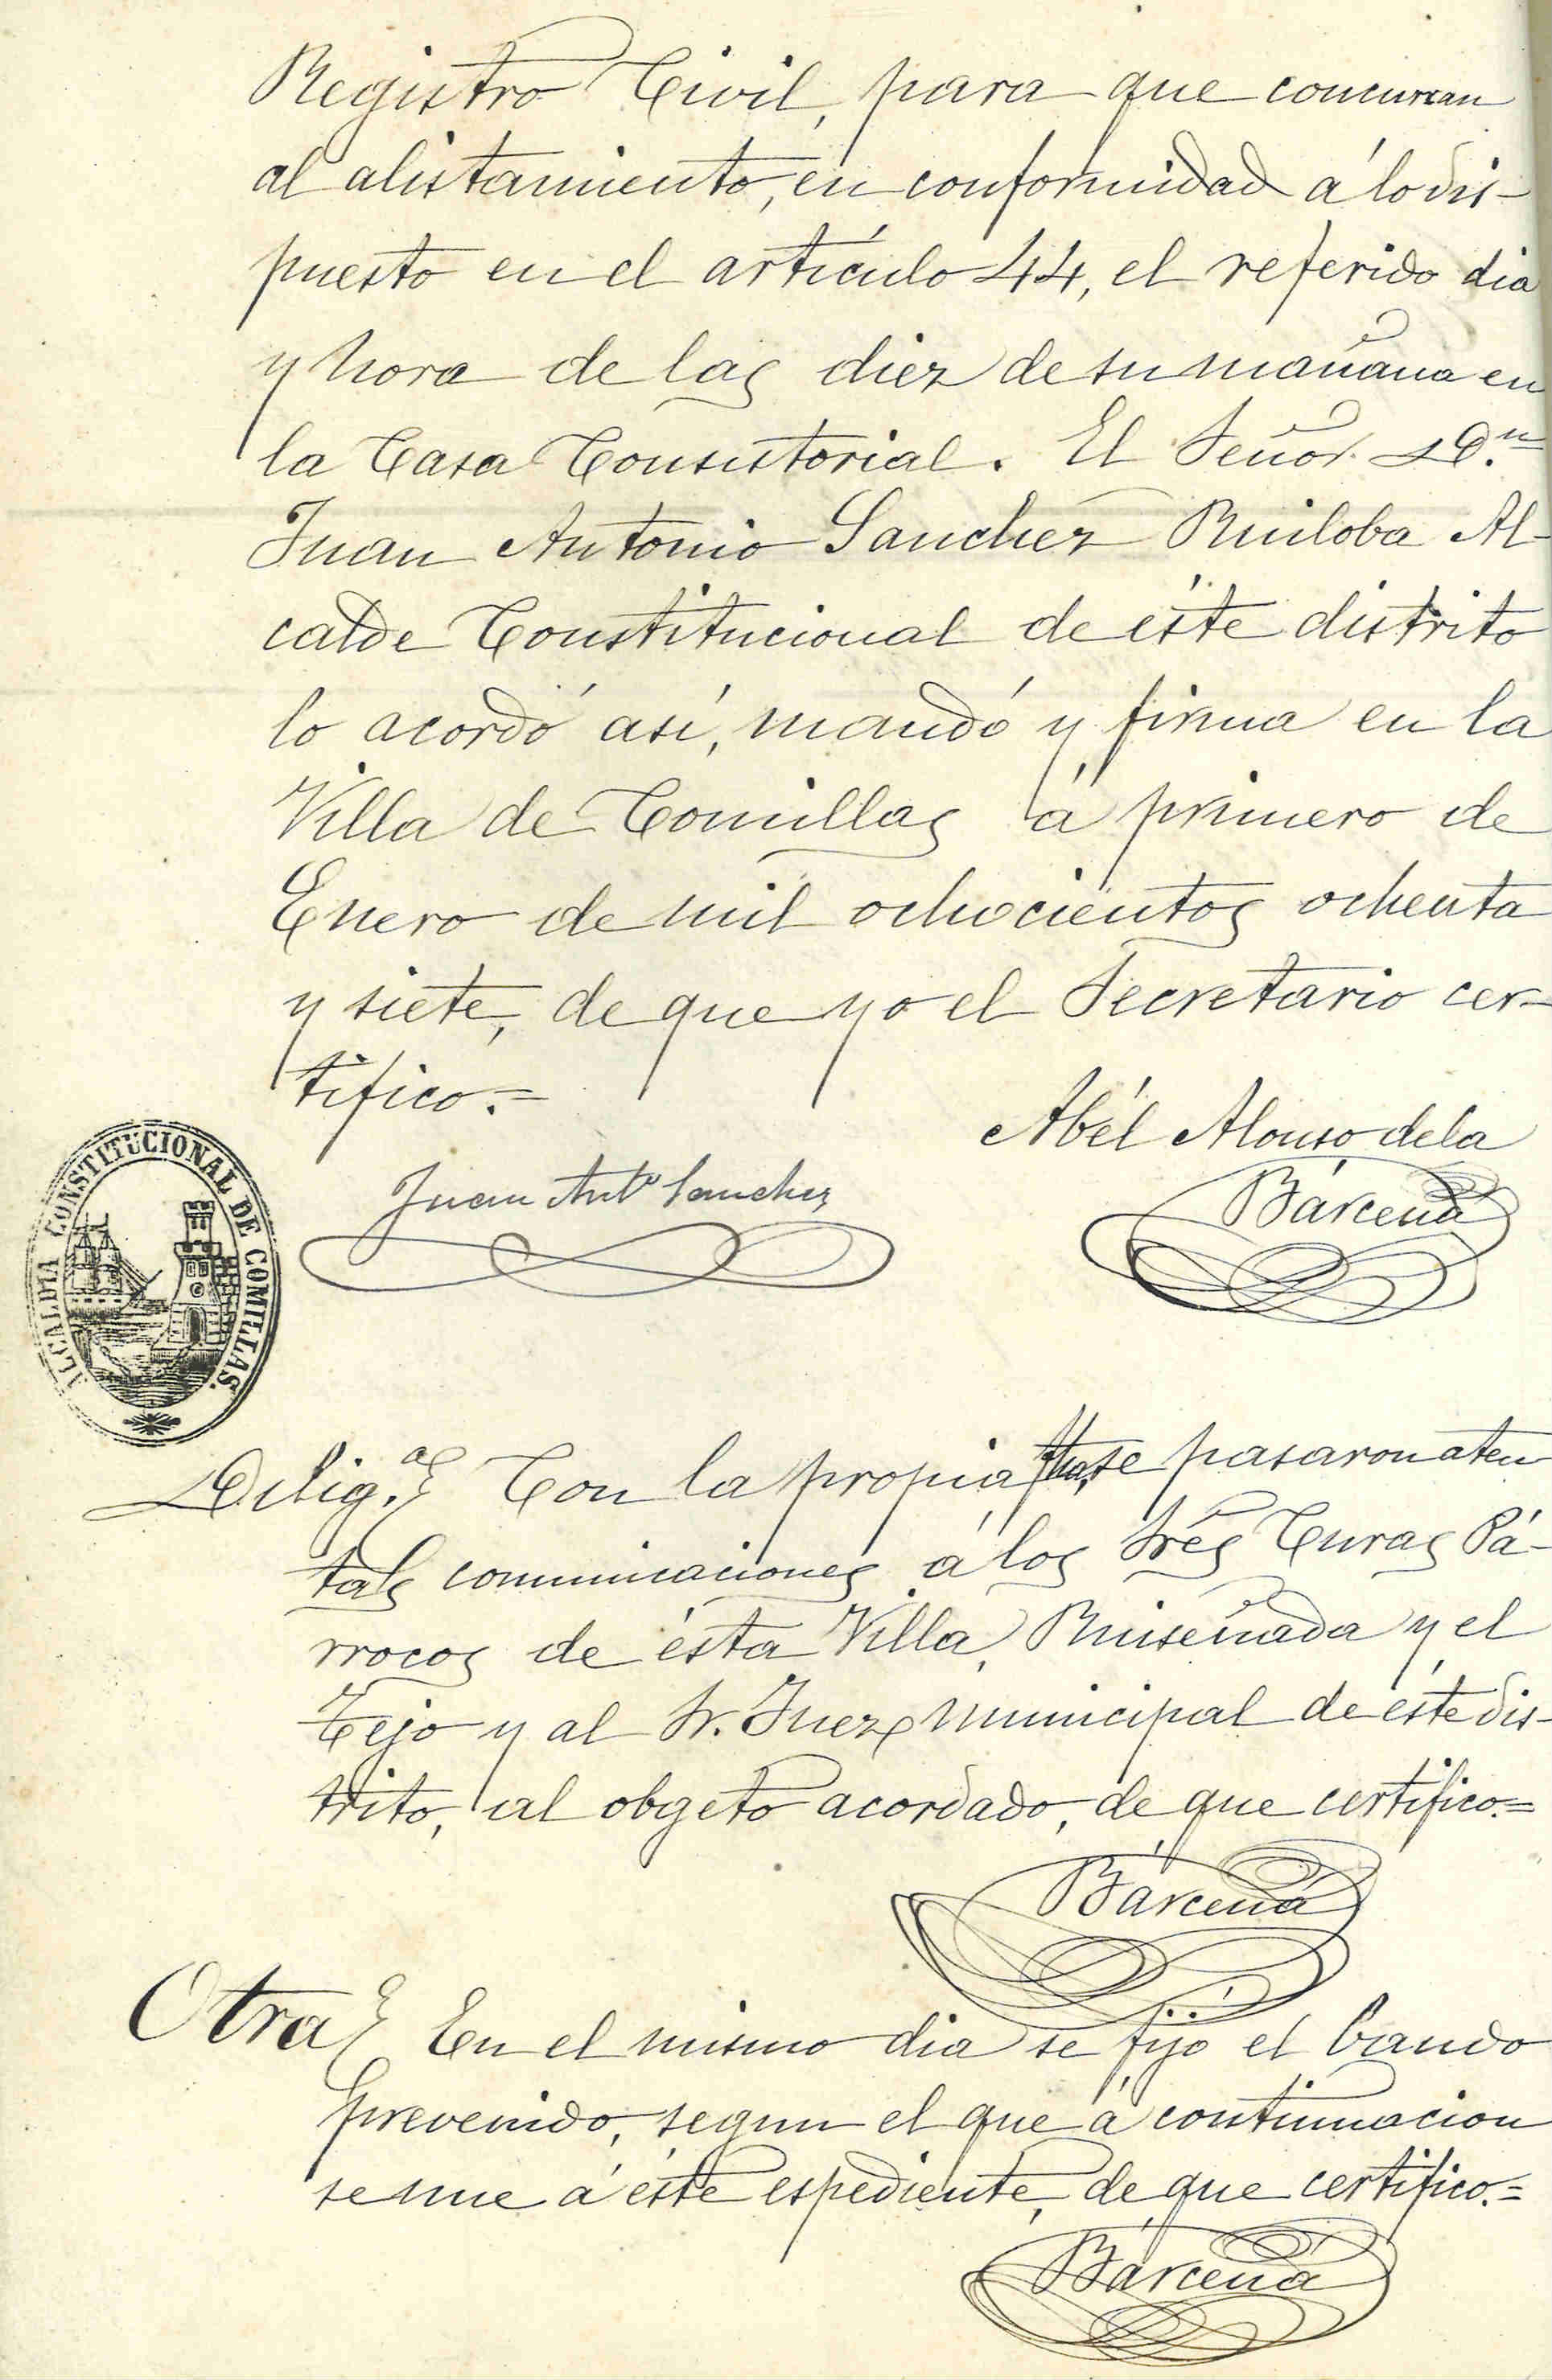 Registro Civil, para que concurran
al alistamiento, en conformidad á lo dis-
puesto en el artículo 44, el referido dia
y hora de las diez de su mañana en
la Casa Consistorial. El Señor D.n
Juan Antonio Sanchez Ruiloba Al-
calde Constitucional de éste distrito
lo acordó así, mandó y firma en la
Villa de Comillas á primero de
Enero de mil ochocientos ochenta
y siete, de que yo el Secretario cer-
tifico.=
Abél Alonso de la
Bárcena
Juan Anto Sanchez
ALCALDIA CONSTITUCIONAL DE COMILLAS.
Dilig.a Con la propia fha, se pasaron aten
tas comunicaciones á los Srés Curas Pá-
rrocos de ésta Villa, Ruiseñada y el
Tejo y al Sr. Juez municipal de éste dis-
trito, al obgeto acordado, de que certifico.=
Bárcena
Otra En el mismo dia se fijó el bando
prevenido, segun el que á continuacion
se une á éste espediente, de que certifico.=
Bárcena